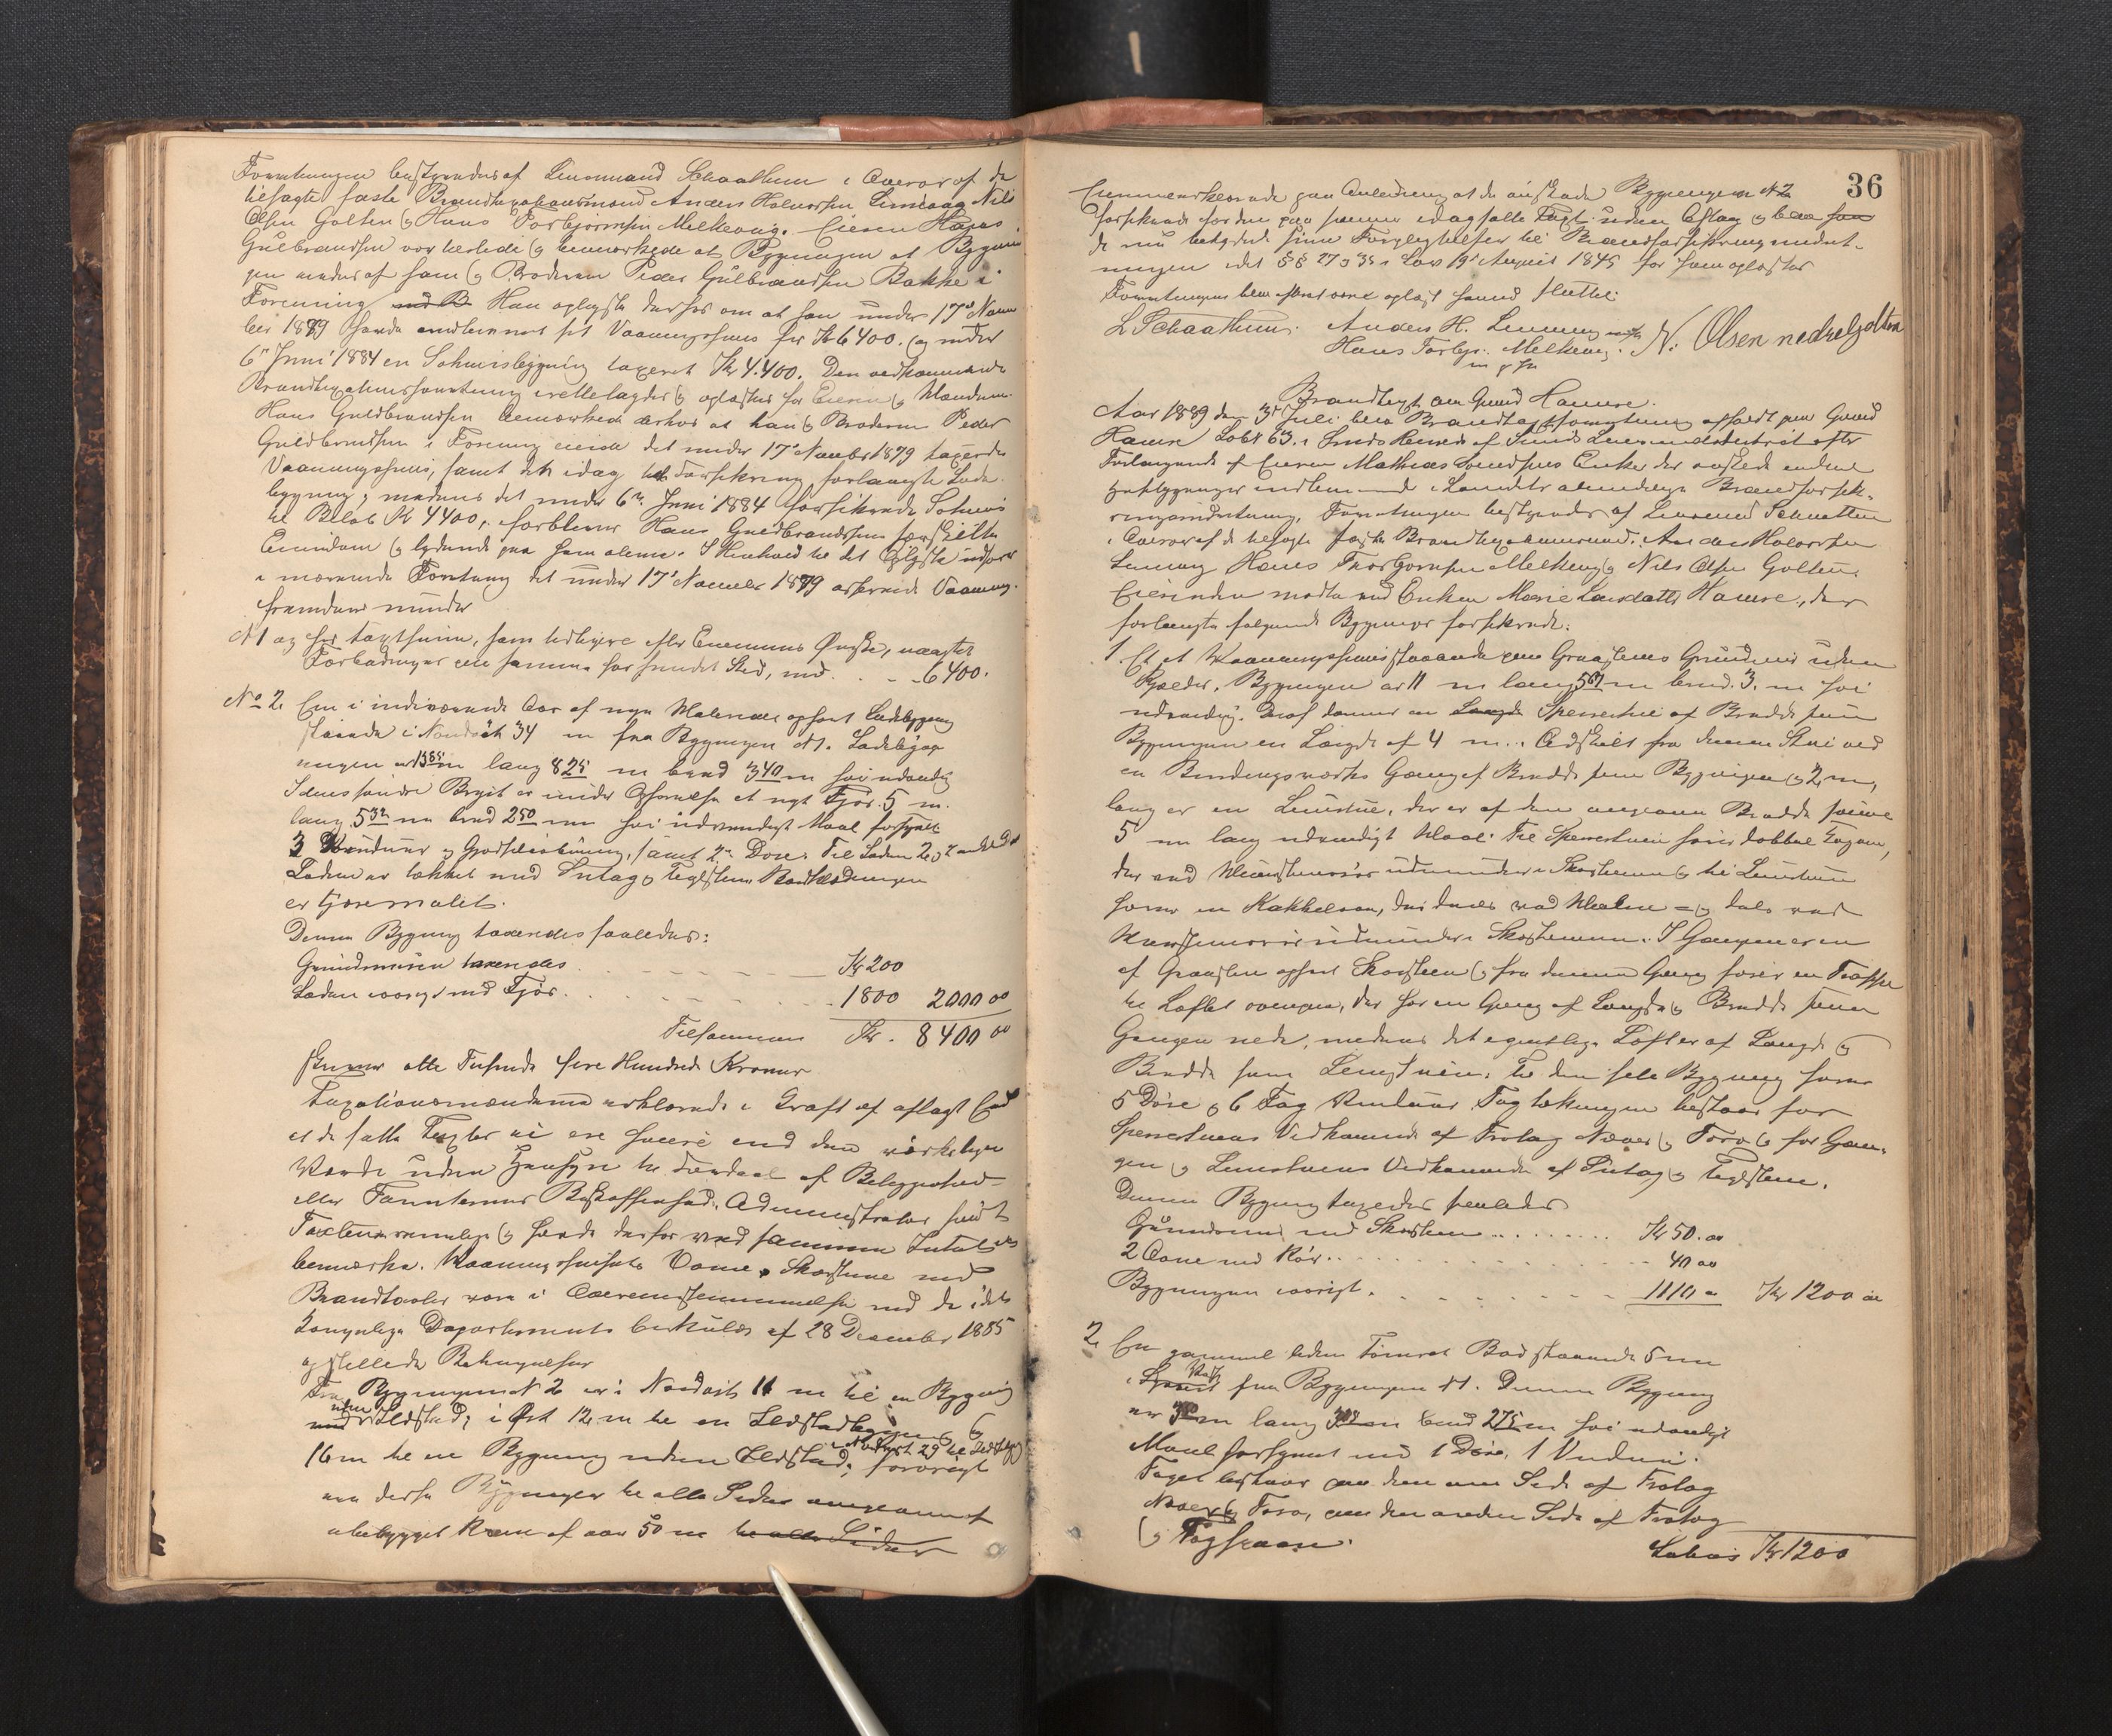 Forretningen bestyredes af Lensmand Schaathun i Overvær af de
tilsagte faste Brandtaxationsmænd Anders Halvorsen Lemvaag, Nils
Olsen Golten og Hans Torbjørnsen Melkevig. Eieren Hans
Gulbrandsen var tilstede og bemærkede at Bygningen
af ham og Broderen Peder Gulbrandsen Bakke i
Forening Han oplyste derhos om at han under 17de Novem
ber 1879 havde indtegnet sit Vaaningshus for Kr 6400. og under
6te Juni 1884 en Sohuusbygning taxeret Kr 4.400. Den vedkommende
Brandtaxationsforretning irettelagdes og oplæstes for Eieren og Mændene.
Hans Guldbrandsen bemærkede derhos at han og Broderen Peder
Guldbrandsen i Forening eiede det under 17de Novbr 1879 taxerede
Vaaningshuus, samt den idag til Forsikring forlangte Lade-
bygning, medens det under 6te Juni 1884 forsikrede Sohuus
til Beløb Kr 4400, forbliver Hans Guldbrandsens særskilte
Eiendom og lydende paa ham alene. I Henhold til det Oplyste
i nærværende Forretning det under 17de November 1879 Vaaning-
fremdeles under
N 1 og for Taxtsum, som tidligere efter Eiernes Ønske,
Forbedringer paa samme har fundet Sted, med . . - 6400.
No 2. En i indeværende Aar af nye Materialer opført Ladebygning
staaende i Nordost 34 m fra Bygningen N1. Ladebyg-
ningen er 13 85 m lang 8 25 m bred 3 40 m høi udvendig
I dens søndre er under Opførelse et nyt Fjøs. 5 m.
lang 5 m bred 2 50 m høi udvendigt Maal forsynet
3 Vinduer og Gjødselsbinding, samt 2de Døre. Til Laden 2
Laden er tækket med Sutag og Teglsteen Bordklædningen
er tjæremalet.
Denne Bygning taxeredes saaledes:
Grundmuren taxeredes . . . . . Kr 200
Laden iøvrigt med Fjøs . . . . . 1800 2000 00
Tilsammen Kr. 8400 00
skriver otte Tusinde fire Hundrede Kroner
Taxationsmændene erklærede i Kraft af aflagt Eed
at de satte Taxter ei ere høiere end den virkelige
Værdi uden Hensyn til Fordeel af Beliggenhed
eller Tomternes Beskaffenhed. Administrator fandt
Taxterne rimelige og havde derfor ved samme Intet at
bemærke. Vaaningshusets Ovne, Skorsteene med
Brandtavler vare i Overensstemmelse med de i det
Kongelige Departements Circulær af 28 December 1885
opstillede Betingelser
Fra Bygningen N 2 er i Nordost 11 m til en Bygning
uden Ildsted; i Øst 12 m til en Ildstedbygning og
16 m til en Bygning uden Ildsted; forøvrigt
om disse Bygninger til alle Sider
ubebygget Rum af over 50 m til alle Sider
36
paa Anledning at de anstaaende Bygningen N 2
forsikrede for den paa samme idag satte Taxt uden Ophold
de nu betydede sine Forpligtelser til Brandforsikringsindret-
ningen idet §§ 27 & 35 i Lov 19de August 1845 for ham oplæstes
Forretningen blev oplæst hvorved sluttet
L Schaathun. Anders H. Lemvaag N. Olsen nedregolten
Hans Torbjr. Melkevig.
m p P
Brandtaxt over Gaard Hamre.
Aar 1889 den 3de Juli blev Brandtaxtforretning afholdt paa Gaard
Hamre Løbr 63. i Sunds Herred af Sunds Lensmandsdistrikt efter
Forlangende af Eieren Mathias Enke der ønskede endeel
Husbygninger indtegnede i Landets almindelige Brandforsik-
ringsindretning. Forretningen bestyredes af Lensmand Schaathun
i Overvær af de tilsagte faste Brandtaxationsmænd. Anders Halvorsen
Lemvaag Hans Thorbjørnsen Melkevig og Nils Olsen Golten.
Eierinden mødte ved Enken Marie Larsdatter Hamre, der
forlangte følgende Bygninger forsikrede:
1. Et et Vaaningshuus staaende paa Graasteens Grundmuur uden
Kjælder. Bygningen er 11 m lang 5 m bred. 3. m høi
udvendig. Deraf danner en Sperrestue af Bredde som
Bygningen en Længde af 4 m. Adskilt fra denne Stue ved
en Bindingsværks Gang af Bredde som Bygningen og 2 m,
lang er en Lemstue, der er af den angivne Bredde samme
5 m lang udvendigt Maal. Til Sperrestuen hører dobbel Etageovn,
der ved udmunder i Skorstenen og til Lemstuen
hører en Kakkelovn, der ved
udmunder i Skorstenen. I Gangen er en
af Graasteen opført Skorsteen og fra denne Gang fører en Trappe
til Loftet ovenpaa, der har en Gang af Længde og Bredde som
Gangen nede, medens det egentlige Loft er af Længde og
Bredde som Lemstuen. Til den hele Bygning hører
5 Døre og 6 Fag Vinduer. Tagtækningen bestaar for
Sperrestuens Vedkommende af Trotag Næver og Torv og for Gan-
gen og Lemstuens Vedkommende af Sutag og Teglsteen.
Denne Bygning taxeredes saaledes
Grundmuur med Skorsteen . . . . . Kr 50.00
2 Ovne med Rør . . . . . 40 00
Bygningen iøvrigt . . . . . 1110 " Kr 1200 00
2. En gammel liden Tømret Bod staaende 5 m
i Vest fra Bygningen N1. Denne Bygning
er m lang m bred 2 75 m høi udvendigt
Maal forsynet med 1 Døre, 1 Vindue.
Taget bestaar paa den ene Side af Trotag
Næver og Torv, paa den anden Side af Trotag
og Tagspaan.
Latus Kr 1200